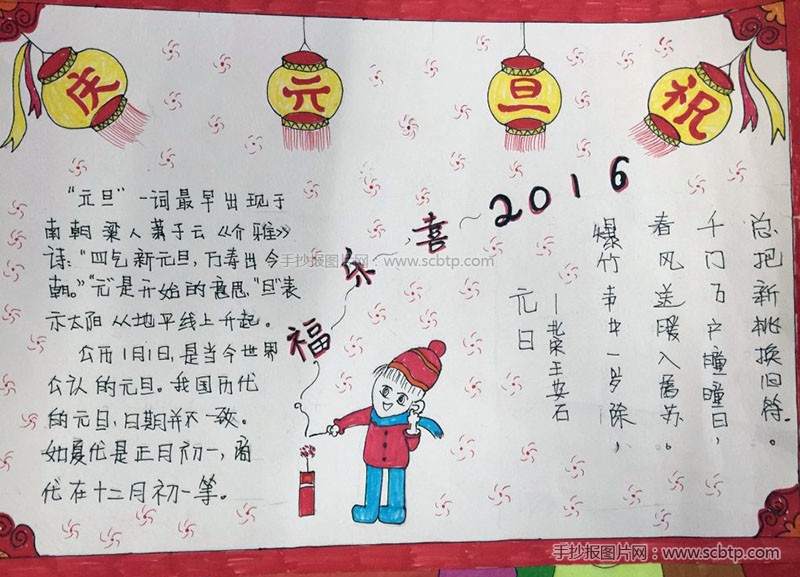 庆
元
旦
祝
"元旦"一词最早出现于
南朝梁人萧子云《介雅》
诗:"四气新元旦,万寿出今
朝。""元"是开始的意思,"旦"表
示太阳从地平线上升起。
公历1月1日,是当今世界
公认的元旦。我国历代
的元旦,日期并不一致。
如夏代是正月初一,商
代在十二月初一等。
福乐喜2016
元日
—北宋王安石
爆竹声中一岁除,
春风送暖入屠苏。
千门万户瞳瞳日,
总把新桃换旧符。
手抄报图片网:www.scbtp.com
手抄报图片网:www.scbtp.com